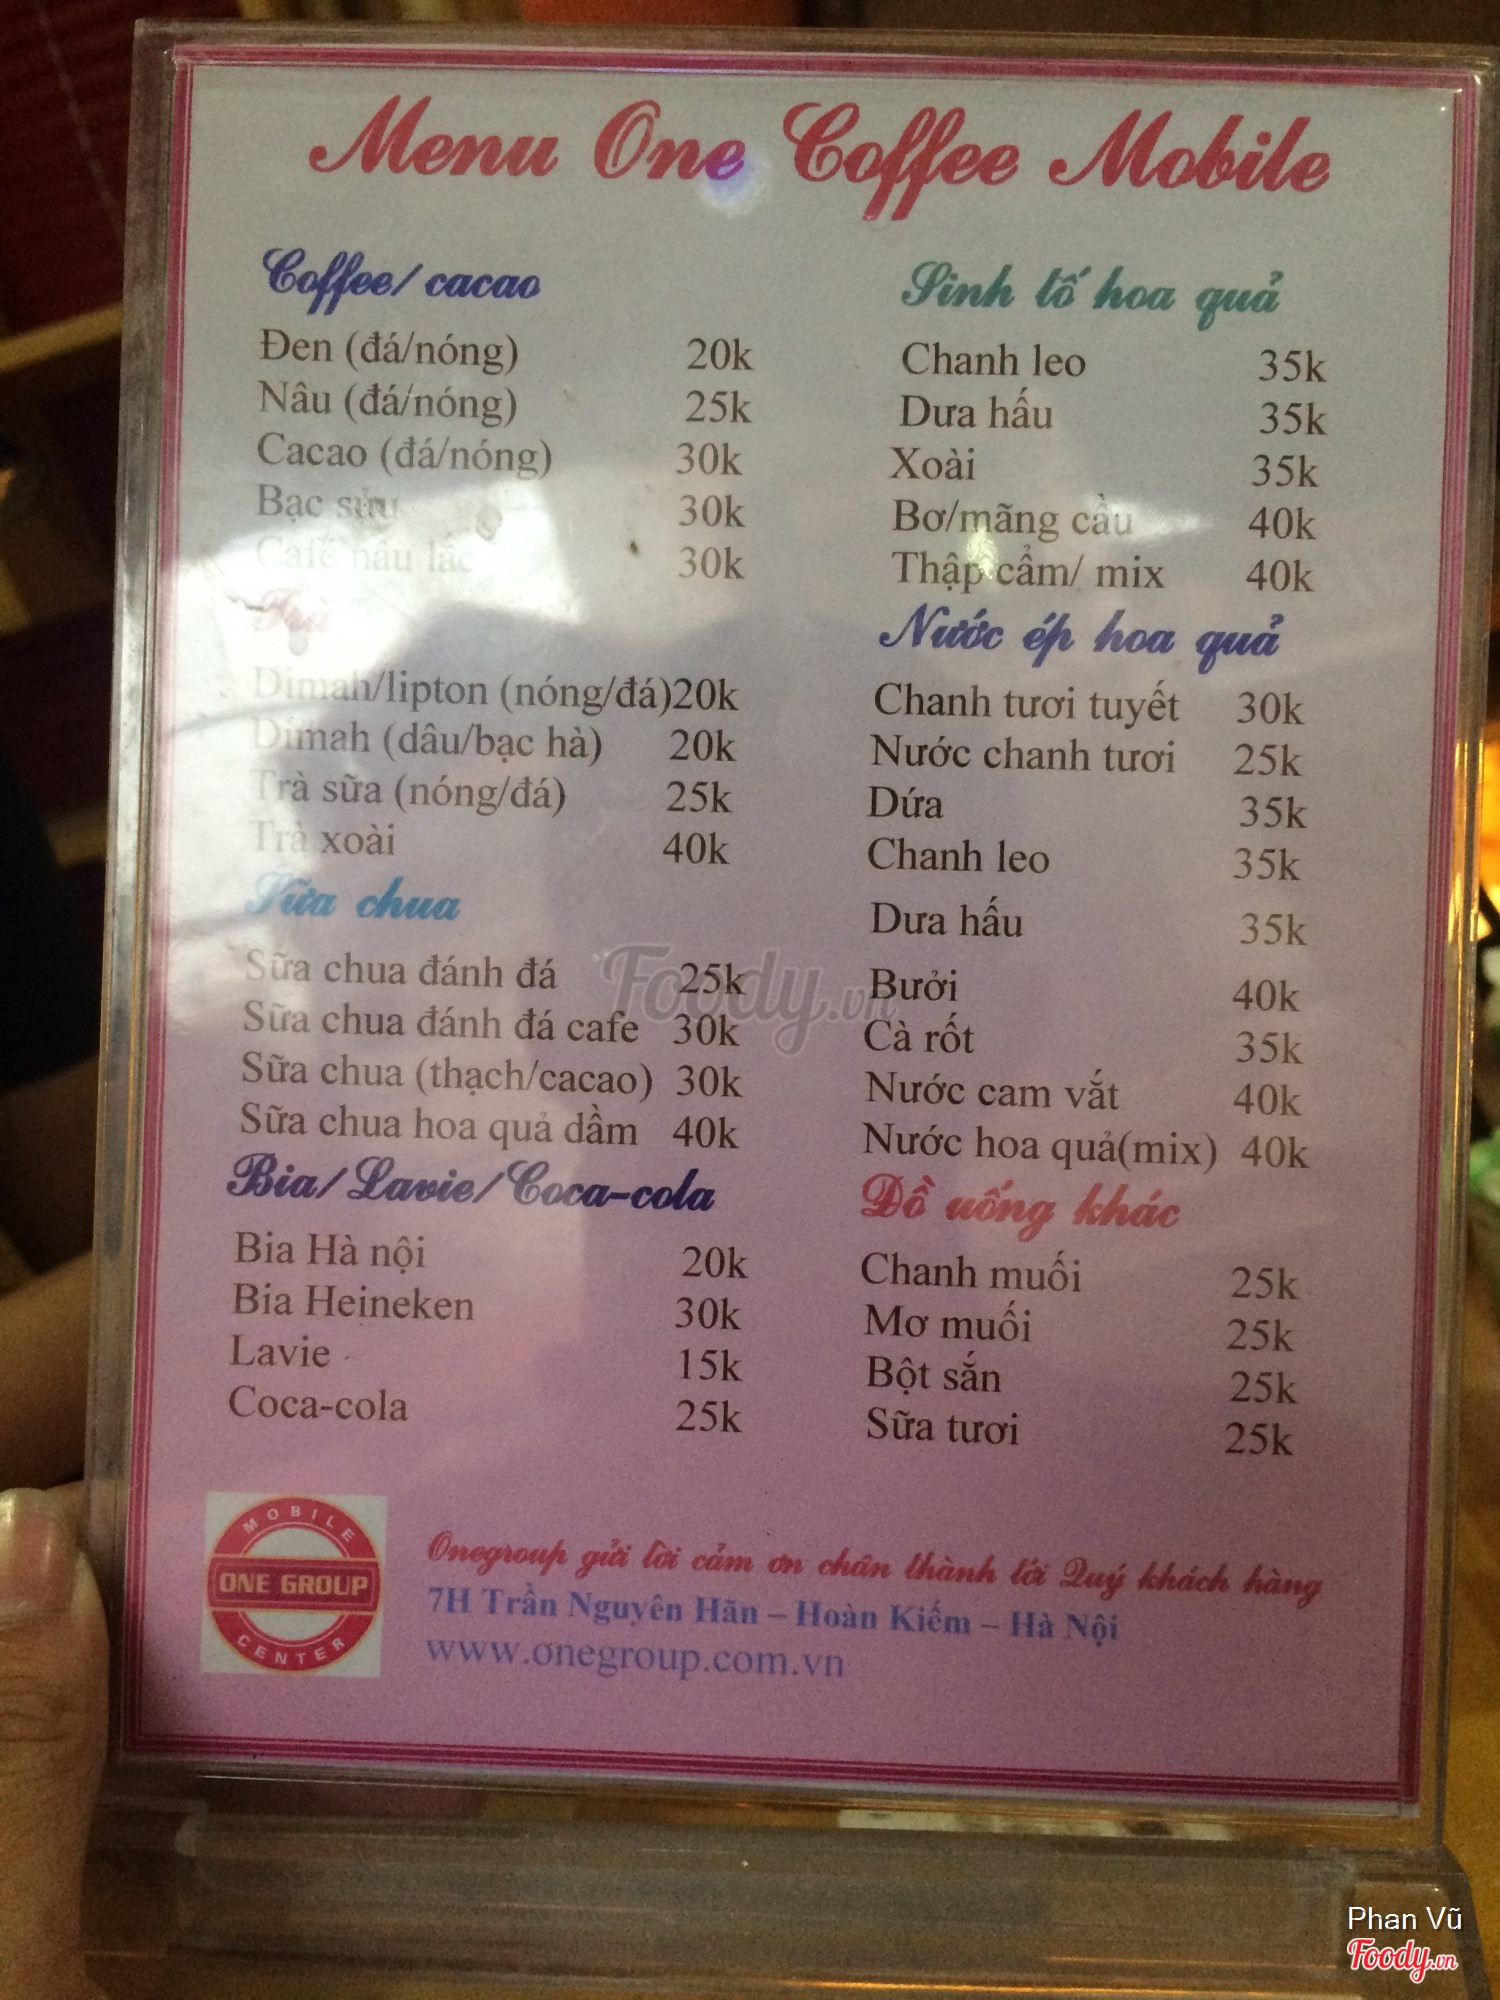 Menu One Coffee Mobile
Coffee/ cacao
Đen (đá/nóng) 20k
Nâu (đá/nóng) 25k
Cacao (đá/nóng) 30k
Bạc sửu 30k
Café nâu lắc 30k
Trà
Dimah/lipton (nóng/đá)20k
Dimah (dâu/bạc hà) 20k
Trà sữa (nóng/đá) 25k
Trà xoài 40k
Sữa chua
Sữa chua đánh đá 25k
Sữa chua đánh đá cafe 30k
Sữa chua (thạch/cacao) 30k
Sữa chua hoa quả dầm 40k
Bia/Lavie/Coca-cola
Bia Hà nội 20k
Bia Heineken 30k
Lavie 15k
Coca-cola 25k
Sinh tố hoa quả
Chanh leo 35k
Dưa hấu 35k
Xoài 35k
Bơ/mãng cầu 40k
Thập cẩm/ mix 40k
Nước ép hoa quả
Chanh tươi tuyết 30k
Nước chanh tươi 25k
Dứa 35k
Chanh leo 35k
Dưa hấu 35k
Bưởi 40k
Cà rốt 35k
Nước cam vắt 40k
Nước hoa quả(mix) 40k
Đồ uống khác
Chanh muối 25k
Mơ muối 25k
Bột sắn 25k
Sữa tươi 25k
MOBILE
ONE GROUP
CENTER
Onegroup gửi lời cảm ơn chân thành tới Quý khách hàng
7H Trần Nguyên Hãn – Hoàn Kiếm – Hà Nội
www.onegroup.com.vn
Foody.vn
Phan Vũ
Foody.vn